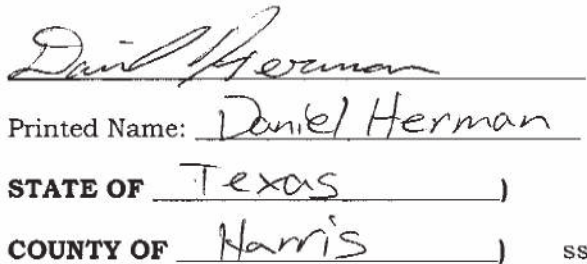 Daniel Herman
Printed Name: Daniel Herman
STATE OF Texas )
COUNTY OF Harris ) ss